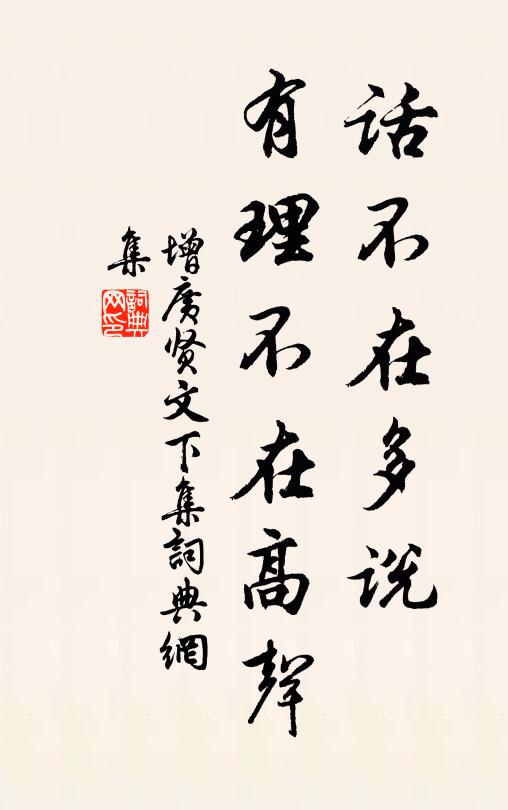 话不在多说
有理不在高聲
增广贤文下集詞典網
集
詞典
网印